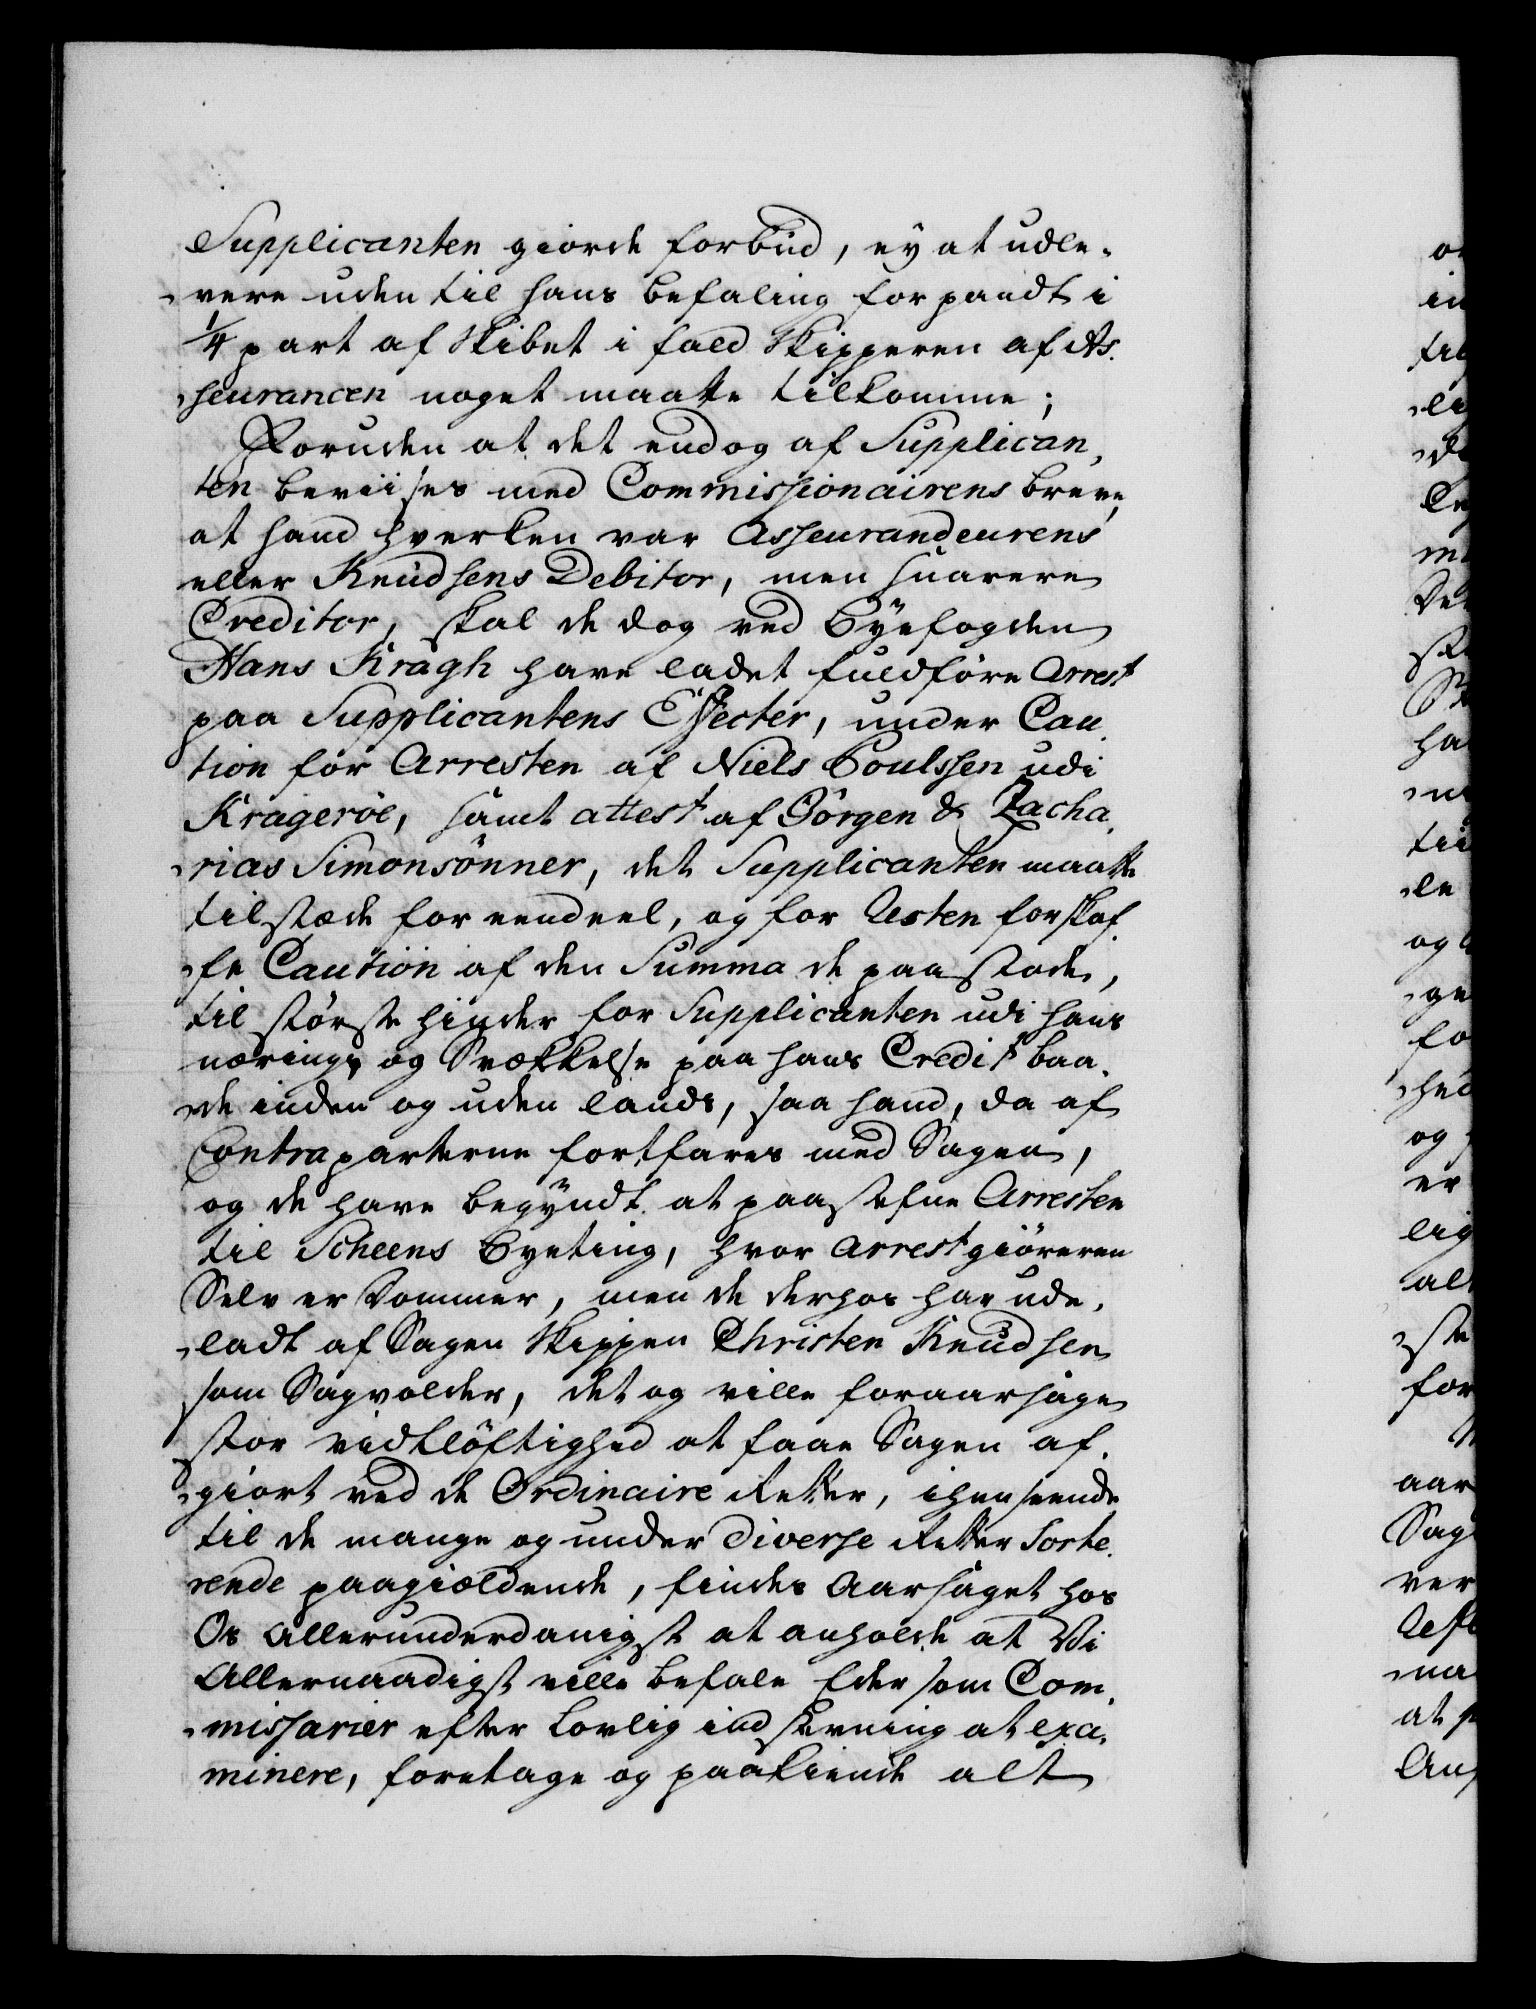 Supplicanten giorde forbud, ey at udle-
vere uden til hans befaling for pandt i
1/4 part af Skibet i fald Skipperen af As-
seurancen noget maatte tilkomme;
Foruden at det endog af Supplican-
ten beviises med Commissionairens breve,
at hand hverken var Asseurandeurens
eller Knudsens Debitor, men snarere
Creditor, skal de dog ved Byefogden
Hans Kragh have ladet fuldføre Arrest
paa Supplicantens Effecter, under Cau-
tion for Arresten af Niels Poulssen udi
Kragerøe, samt attest af Jørgen & Zacha-
rias Simonsønner, det Supplicanten maatte
tilstæde for eendeel, og for Resten forskaf-
fe Caution af den Summa de paastode,
til største hinder for Supplicanten udi hans
næring, og Svækkelse paa hans Credit baa-
de inden og uden lands, saa hand, da af
Contraparterne fortfares med Sagen,
og de have begyndt at paastefne Arresten
til Scheens Byeting, hvor Arrestgiøreren
Selv er Dommer, men de derhos har ude-
ladt af Sagen Skipper Christen Knudsen
som Sagvolder, det og ville foraarsage
stor vidtløftighed at faae Sagen af-
giort ved de Ordinaire Retter, i henseende
til de mange og under diverse Retter Sorte-
rende paagiældende, findes Aarsaget hos
Os allerunderdanigst at anholde at Vi
Allernaadigst ville befale Eder som Com-
missarier efter lovlig indstevning at exa-
minere, foretage og paakiende alt